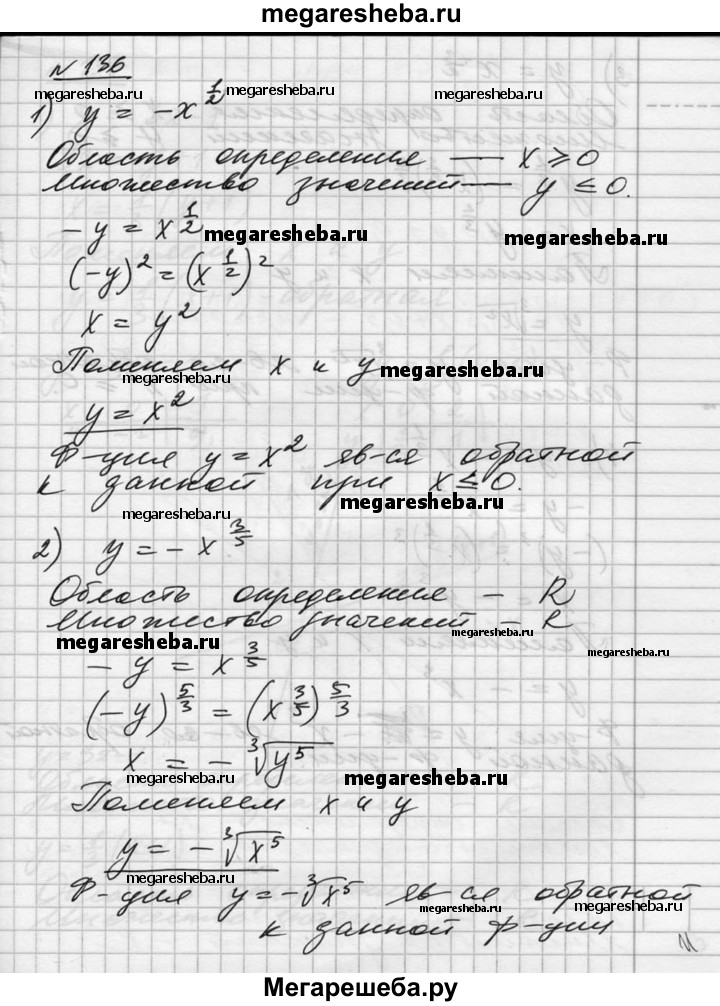 megaresheba.ru
№ 136
megaresheba.ru megaresheba.ru megaresheba.ru
1) y = -x^{1/2}
Область определения — x ≥ 0
Множество значений — y ≤ 0.
-y = x^{1/2} megaresheba.ru megaresheba.ru
(-y)^2 = (x^{1/2})^2
x = y^2
Поменяем x и y megaresheba.ru
megaresheba.ru
y = x^2
Ф-ция y = x^2 яв-ся обратной
к данной при x ≤ 0.
megaresheba.ru megaresheba.ru
2) y = -x^{3/5}
Область определения - R
Множество значений - R
megaresheba.ru megaresheba.ru megaresheba.ru
-y = x^{3/5}
(-y)^{5/3} = (x^{3/5})^{5/3}
x = -∛y^5
megaresheba.ru megaresheba.ru
Поменяем x и y
y = -∛x^5
megaresheba.ru
Ф-ция y = -∛x^5 яв-ся обратной
megaresheba.ru megaresheba.ru
к данной ф-ции
Мегарешеба.ру